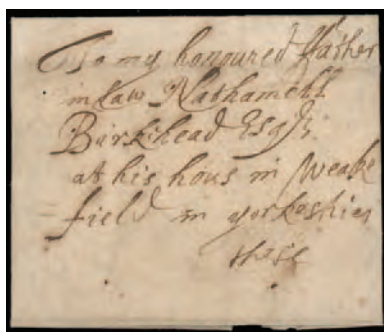 To my honoured ffather
in law Nathaniell
Birkhead Esqr
at his hous in Weake
field in yorkeshier
these